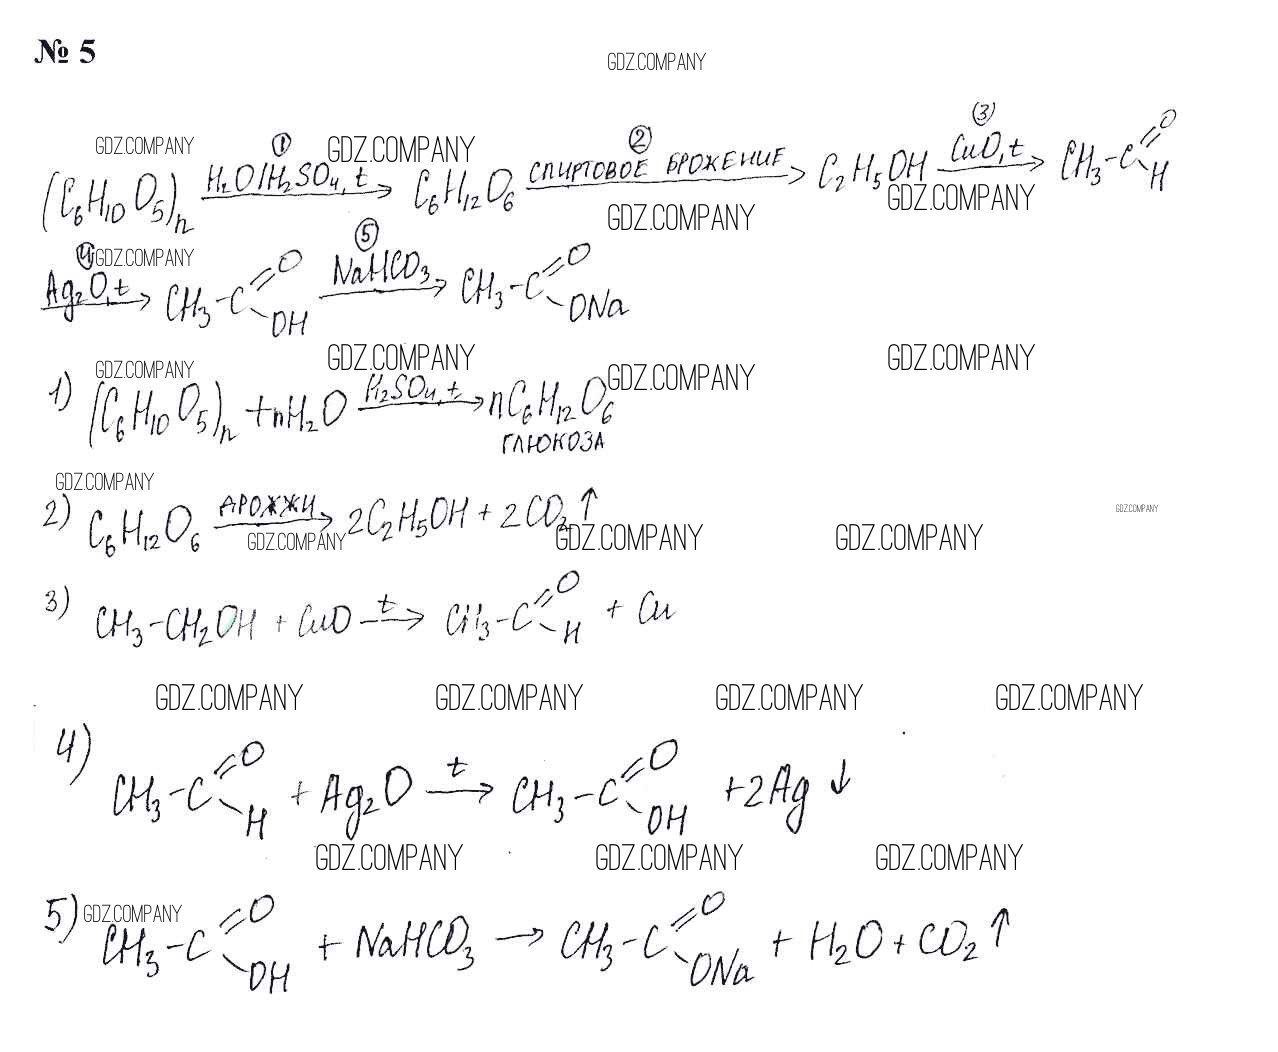 № 5
GDZ.COMPANY
③
GDZ.COMPANY ① GDZ.COMPANY ②
(C₆H₁₀O₅)ₙ H₂O/H₂SO₄, t → C₆H₁₂O₆ СПИРТОВОЕ БРОЖЕНИЕ → C₂H₅OH CuO, t → CH₃-C=O H
GDZ.COMPANY GDZ.COMPANY
④ GDZ.COMPANY ⑤
Ag₂O, t → CH₃-C=O OH NaHCO₃ → CH₃-C=O ONa
GDZ.COMPANY GDZ.COMPANY GDZ.COMPANY GDZ.COMPANY
1) (C₆H₁₀O₅)ₙ + nH₂O H₂SO₄, t → nC₆H₁₂O₆
ГЛЮКОЗА
GDZ.COMPANY
2) C₆H₁₂O₆ ДРОЖЖИ → 2C₂H₅OH + 2CO₂↑
GDZ.COMPANY
GDZ.COMPANY GDZ.COMPANY GDZ.COMPANY
3) CH₃-CH₂OH + CuO t → CH₃-C=O H + Cu
GDZ.COMPANY GDZ.COMPANY GDZ.COMPANY GDZ.COMPANY
4) CH₃-C=O H + Ag₂O t → CH₃-C=O OH + 2Ag↓
GDZ.COMPANY GDZ.COMPANY GDZ.COMPANY
5) GDZ.COMPANY
CH₃-C=O OH + NaHCO₃ → CH₃-C=O ONa + H₂O + CO₂↑